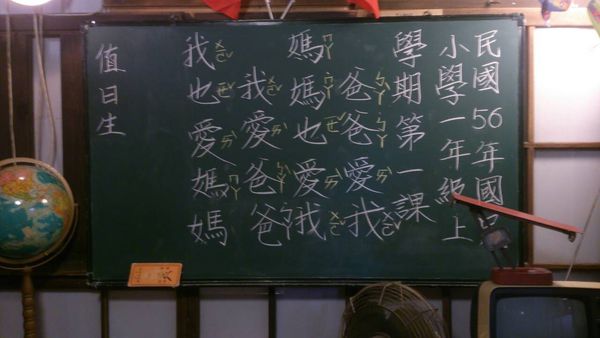 民國56年國語
小學一年級上
學期第一課
爸爸愛我
媽媽也愛我
我愛爸爸
我也愛媽媽
值日生